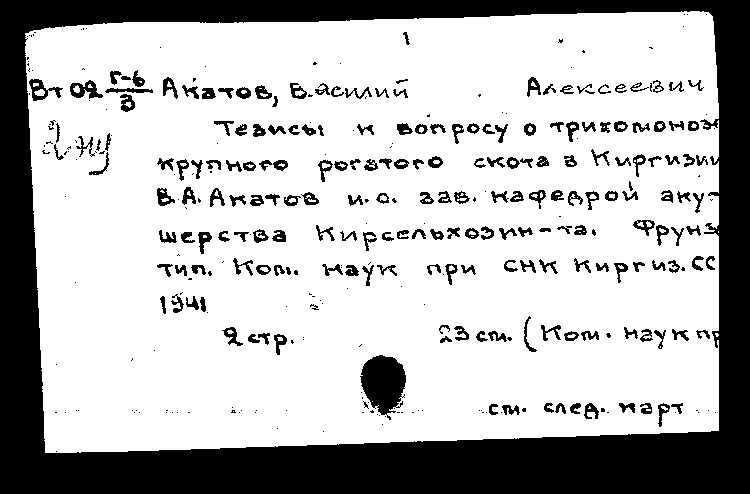 1
Вт 02 г-6/3 Акатов, Василий Алексеевич
Тезисы к вопросу о трихомоноз
2 
крупного рогатого скота в Киргизии
В.А. Акатов и.о. зав. кафедрой аку-
шерства Кирсельхозин-та. Фрунзе
тип. Ком. наук при СНК Киргиз. СС
1941
2 стр. 23 см. (Ком. наук пр
см. след. карт